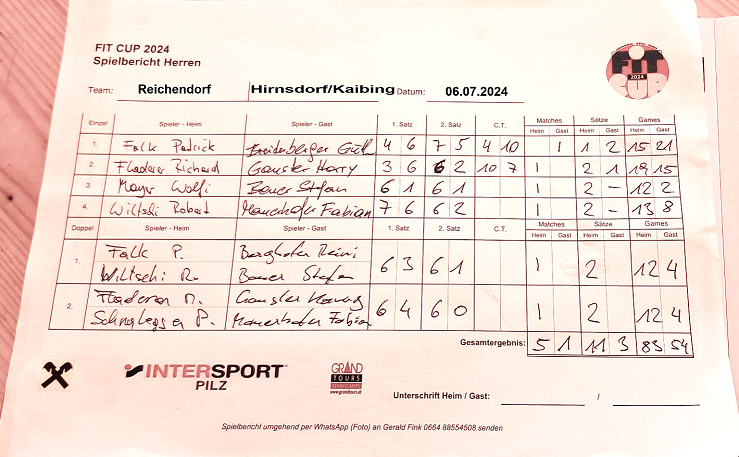 FIT CUP 2024
Spielbericht Herren
FIT CUP
Team: Reichendorf Hirnsdorf/Kaibing Datum: 06.07.2024
Einzel Spieler - Heim Spieler - Gast 1. Satz 2. Satz C.T. Matches Sätze Games
Heim Gast Heim Gast Heim Gast
1. Falk Patrick 4 6 7 5 4 10 1 1 2 15 21
2. Fladerer Richard Gauster Harry 3 6 6 2 10 7 1 2 1 19 15
3. Mayer Wolfi Bauer Stefan 6 1 6 1 1 2 - 12 2
4. Wiltschi Robert Mauerhofer Fabian 7 6 6 2 1 2 - 13 8
Doppel Spieler - Heim Spieler - Gast 1. Satz 2. Satz C.T. Matches Sätze Games
Heim Gast Heim Gast Heim Gast
Falk P. Berghofer Reini
1. 6 3 6 1 1 2 12 4
Wiltschi R. Bauer Stefan
Fladerer R. Gauster Harry
2. 6 4 6 0 1 2 12 4
P. Mauerhofer Fabian
Gesamtergebnis: 5 1 11 3 83 54
INTERSPORT
PILZ
GRAND
TOURS
www.grandtours.at
Unterschrift Heim / Gast: /
Spielbericht umgehend per WhatsApp (Foto) an Gerald Fink 0664 88554508 senden